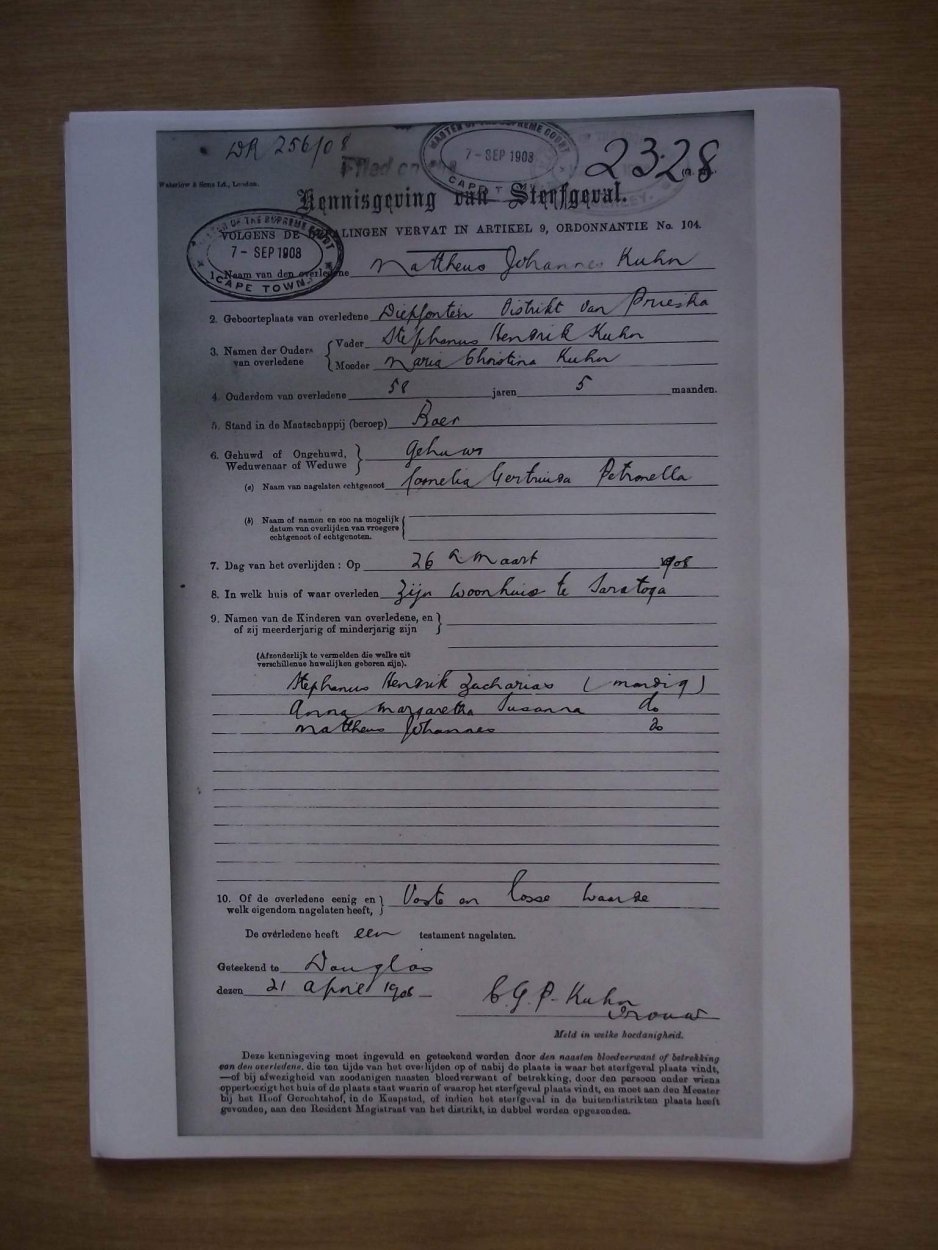 DR 256/08
Filed
MASTER OF THE SUPREME COURT
7 - SEP 1908
CAPE T
2328
Waterlow & Sons Ld., London.
Kennisgeving van Sterfgeval.
OF THE SUPREME COURT
7 - SEP 1908
CAPE TOWN
VOLGENS DE BEPALINGEN VERVAT IN ARTIKEL 9, ORDONNANTIE No. 104.
1. Naam van den overledene Mattheus Johannes Kuhn
2. Geboorteplaats van overledene Diepfontein Distrikt van Prieska
3. Namen der Ouders van overledene { Vader Stephanus Hendrik Kuhn
Moeder Maria Christina Kuhn
4. Ouderdom van overledene 58 jaren 5 maanden.
5. Stand in de Maatschappij (beroep) Boer
6. Gehuwd of Ongehuwd, Weduwenaar of Weduwe } Gehuwd
(a) Naam van nagelaten echtgenoot Cornelia Gertruida Petronella
(b) Naam of namen en zoo na mogelijk
datum van overlijden van vroegere
echtgenoot of echtgenoten.
7. Dag van het overlijden : Op 26 Maart 1908
8. In welk huis of waar overleden Zijn woonhuis te Saratoga
9. Namen van de Kinderen van overledene, en
of zij meerderjarig of minderjarig zijn
(Afzonderlijk te vermelden die welke uit
verschillende huwelijken geboren zijn).
Stephanus Hendrik Zacharias (mondig)
Anna Margaretha Susanna do
Mattheus Johannes do
10. Of de overledene eenig en
welk eigendom nagelaten heeft, } Vaste en losse waarde
De overledene heeft een testament nagelaten.
Geteekend te Douglas
dezen 21 April 1908
C. G. P. Kuhn
Vrouw
Meld in welke hoedanigheid.
Deze kennisgeving moet ingevuld en geteekend worden door den naasten bloedverwant of betrekking
van den overledene, die ten tijde van het overlijden op of nabij de plaats is waar het sterfgeval plaats vindt,
—of bij afwezigheid van zoodanigen naasten bloedverwant of betrekking, door den persoon onder wiens
oppertoezigt het huis of de plaats staat waarin of waarop het sterfgeval plaats vindt, en moet aan den Meester
bij het Hoof Gerechtshof, in de Kaapstad, of indien het sterfgeval in de buitendistrikten plaats heeft
gevonden, aan den Resident Magistraat van het distrikt, in dubbel worden opgezonden.